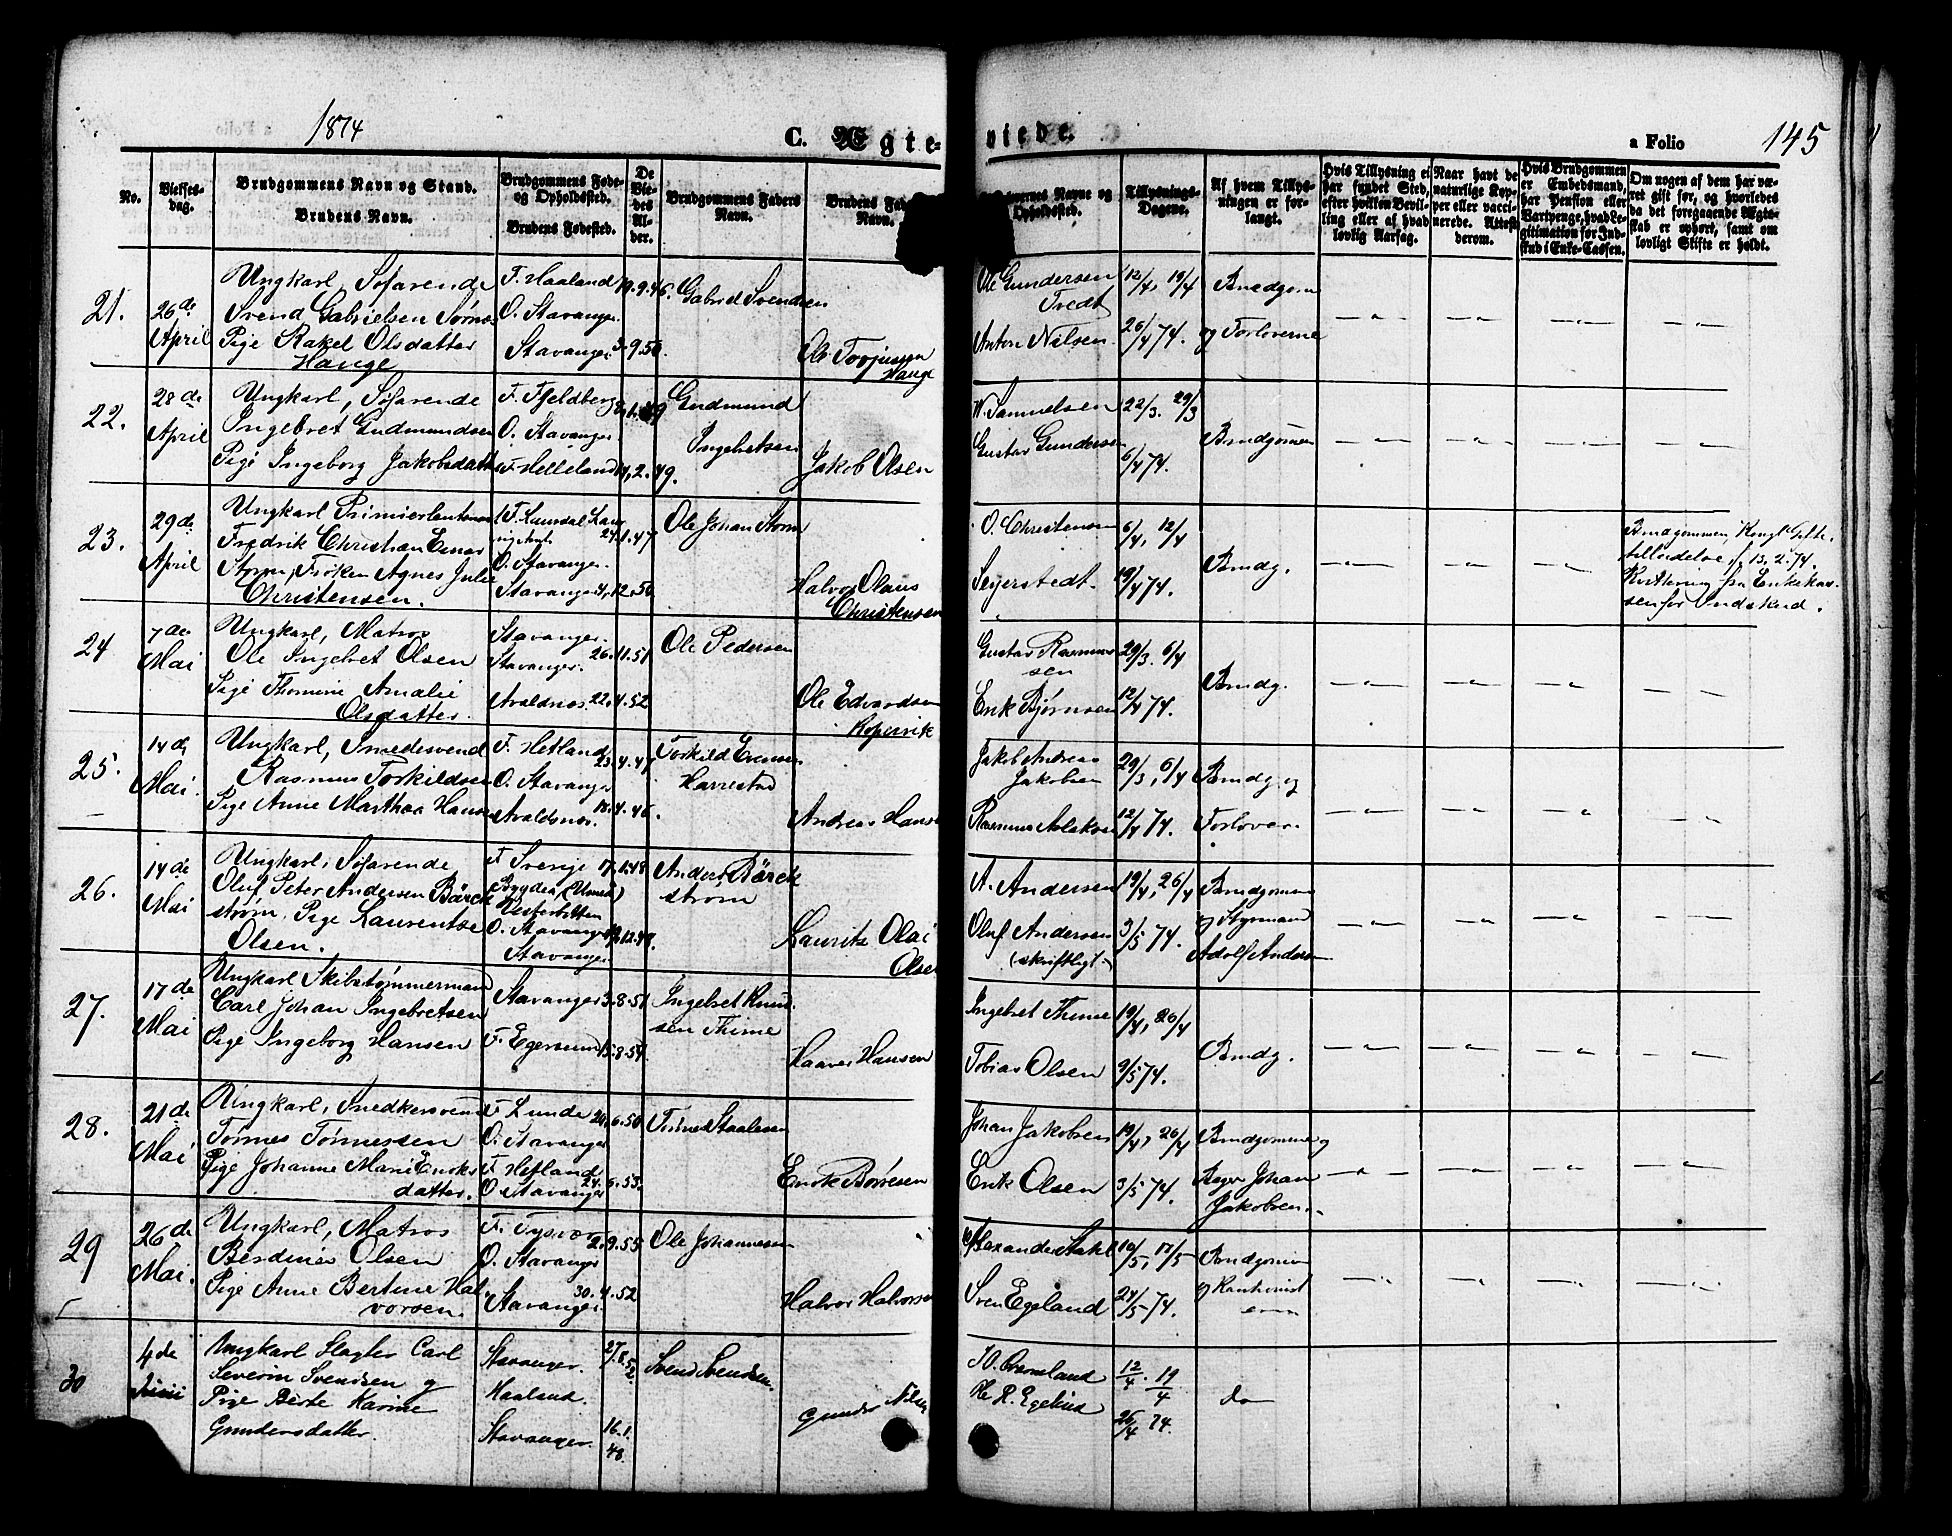 1874
C. Ægte-
viede.
a Folio
145
No.
Vielses-
dag.
Brudgommens Navn og Stand.
Brudens Navn.
Brudgommens Føde-
og Opholdsted.
Brudens Fødested.
De
Vie-
des
Al-
der.
Brudgommens Faders
Navn.
Brudens
Navn.
Navne og
Opholdsted.
Tillysnings-
Dagene.
Af hvem Tillys-
ningen er for-
langt.
Hvis Tillysning ei
har fundet Sted,
efter hvilken Bevil-
ling eller af hvad
lovlig Aarsag.
Naar havt de
naturlige Kop-
per eller vacci-
nerede. Attest
derom.
Hvis Brudgommen
er Embedsmand,
har Pension eller
Vartpenge, hvad Le-
gitimation for Ind-
skud i Enke-Cassen.
Om nogen af dem har væ-
ret gift før, og hvorledes
da det foregaaende Ægte-
skab er ophørt, samt om
lovligt Skifte er holdt.
21.
26de
April
Ungkarl, Søfarende
Svend Gabrielsen
Pige Rakel Olsdatter
Hauge
F. Haaland
O. Stavanger.
Stavanger
19.9.46.
3.9.50.
Gabriel Svendsen
Ole Torjusen
Hauge
Ole Gundersen
Tredt
Anton Nilsen
12/4, 19/4
26/4 74.
Brudgom
og Forloverne
22.
28de
April
Ungkarl, Søfarende
Ingebret Gudmundsen
Pige Ingeborg Jakobsdatt
F. Fjeldberg
O. Stavanger
F. Helleland
14.2.49.
Gudmund
Ingebretsen
Jakob Olsen
W. Samuelsen
Gustav Gundersen
22/3. 29/3
6/4 74.
Brudgommen
23.
29de
April
Ungkarl Primierleutenan
Fredrik Christian Einar
Storm, Frøken Agnes Julie
Christensen.
O. Stavanger.
Stavanger
24.1.47
4.12.50
Ole Johan Storm
Halvor Olaus
Christensen
O. Christensen
Seyerstedt.
6/4, 12/4
19/4 74.
Brudg.
Brudgommen Kongl. Gifte-
tilladelse f. 13.2.74.
Kvittering fra Enkekas-
sen for Indskud.
24
7de
Mai
Ungkarl, Matros
Ole Ingebret Olsen
Pige Thomine Amalie
Olsdatter.
Stavanger.
Stavanger.
Avaldsnes
26.11.51
22.4.52
Ole Pedersen
Ole Edvardsen
Kopervik
Gustav Rasmus
sen
Erik Bjørnsen
29/3. 6/4
12/4 74.
Brudg.
25.
14de
Mai.
Ungkarl, Smedesvend
Rasmus Torkildsen
Pige Anne Marthea Hansen
F. Hetland
O. Stavanger
Avaldsnes.
23.4.47
18.4.46.
Torkild
Harrestad
Andreas Hansen
Jakob Andreas
Jakobsen
Rasmus Aslaksen
29/3, 6/4
12/4 74.
Brudg. og
Forlover.
26.
14de
Mai
Ungkarl, Søfarende
Oluf Peter Andersen Bärck
strøm, Pige Laurentse
Olsen.
F. Sverije
Bygdeå (Umeå)
Vesterbotten
O. Stavanger
Stavanger
17.1.48
12.47.
Anders Bärck
strøm
Laurits Olai
Olsen
A. Andersen
Oluf Andersen
(skriftligt)
19/4, 26/4
3/5 74.
Brudgommen
og Styrmand
Adolf Andersen
27.
17de
Mai
Ungkarl Skibstømmermand
Carl Johan Ingebretsen
Pige Ingeborg Hansen
Stavanger
F. Egersund
3.8.51
15.8.54.
Ingebret Knud
sen Thime
Haaver Hansen
Ingebret Thime
Tobias Olsen
19/4, 26/4
9/5 74.
Brudg.
28.
21de
Mai
Ungkarl, Snedkersvend
Tønnes Tønnessen
Pige Johanne Marie Enoks
datter.
F. Lunde
O. Stavanger
F. Hetland
O. Stavanger
24.6.50
24.6.53.
Tønnes Staalesen
Enok Børresen
Johan Jakobsen
Erik Olsen
19/4, 26/4
3/5 74.
Brudgommen og
Bager Johan
Jakobsen.
29
26de
Mai.
Ungkarl, Matros
Berdines Olsen
Pige Anne Bertine Hal
vorsen
F. Tysvær
O. Stavanger
Stavanger
2.9.55
30.4.52
Ole Johannesen
Halvor Halvorsen
Alexander Stahl
Sven Egeland
10/5, 17/5
24/5 74.
Brudgommen
og Kautionist
erne
30
4de
Juni
Ungkarl Slagter Carl
Severin Svendsen og
Pige Berte Karine
Gundersdatter.
Stavanger.
Haaland.
Stavanger.
16.1.
48
Svend Svendsen.
Gunder Nilsen
12/4. 19/4
26/4 74.
do